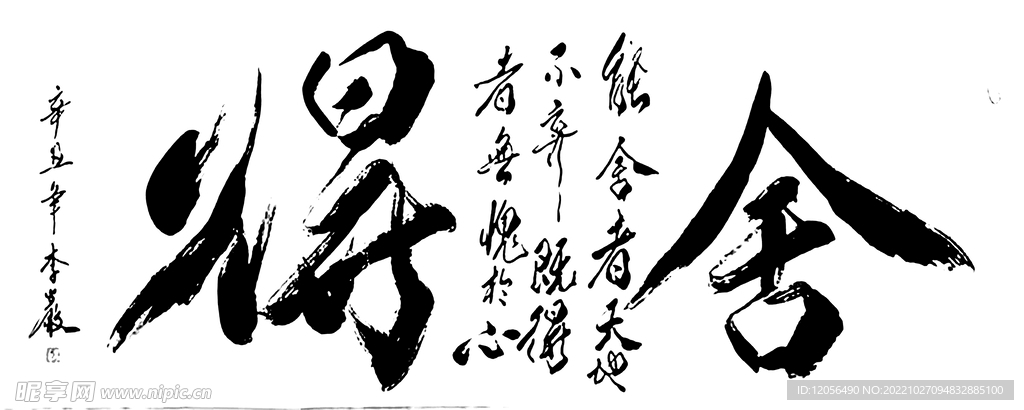 舍
能舍者天地
不弃既得
者無愧於心
得
辛丑年李嚴
昵享网 www.nipic.cn
ID:12056490 NO:20221027094832885100